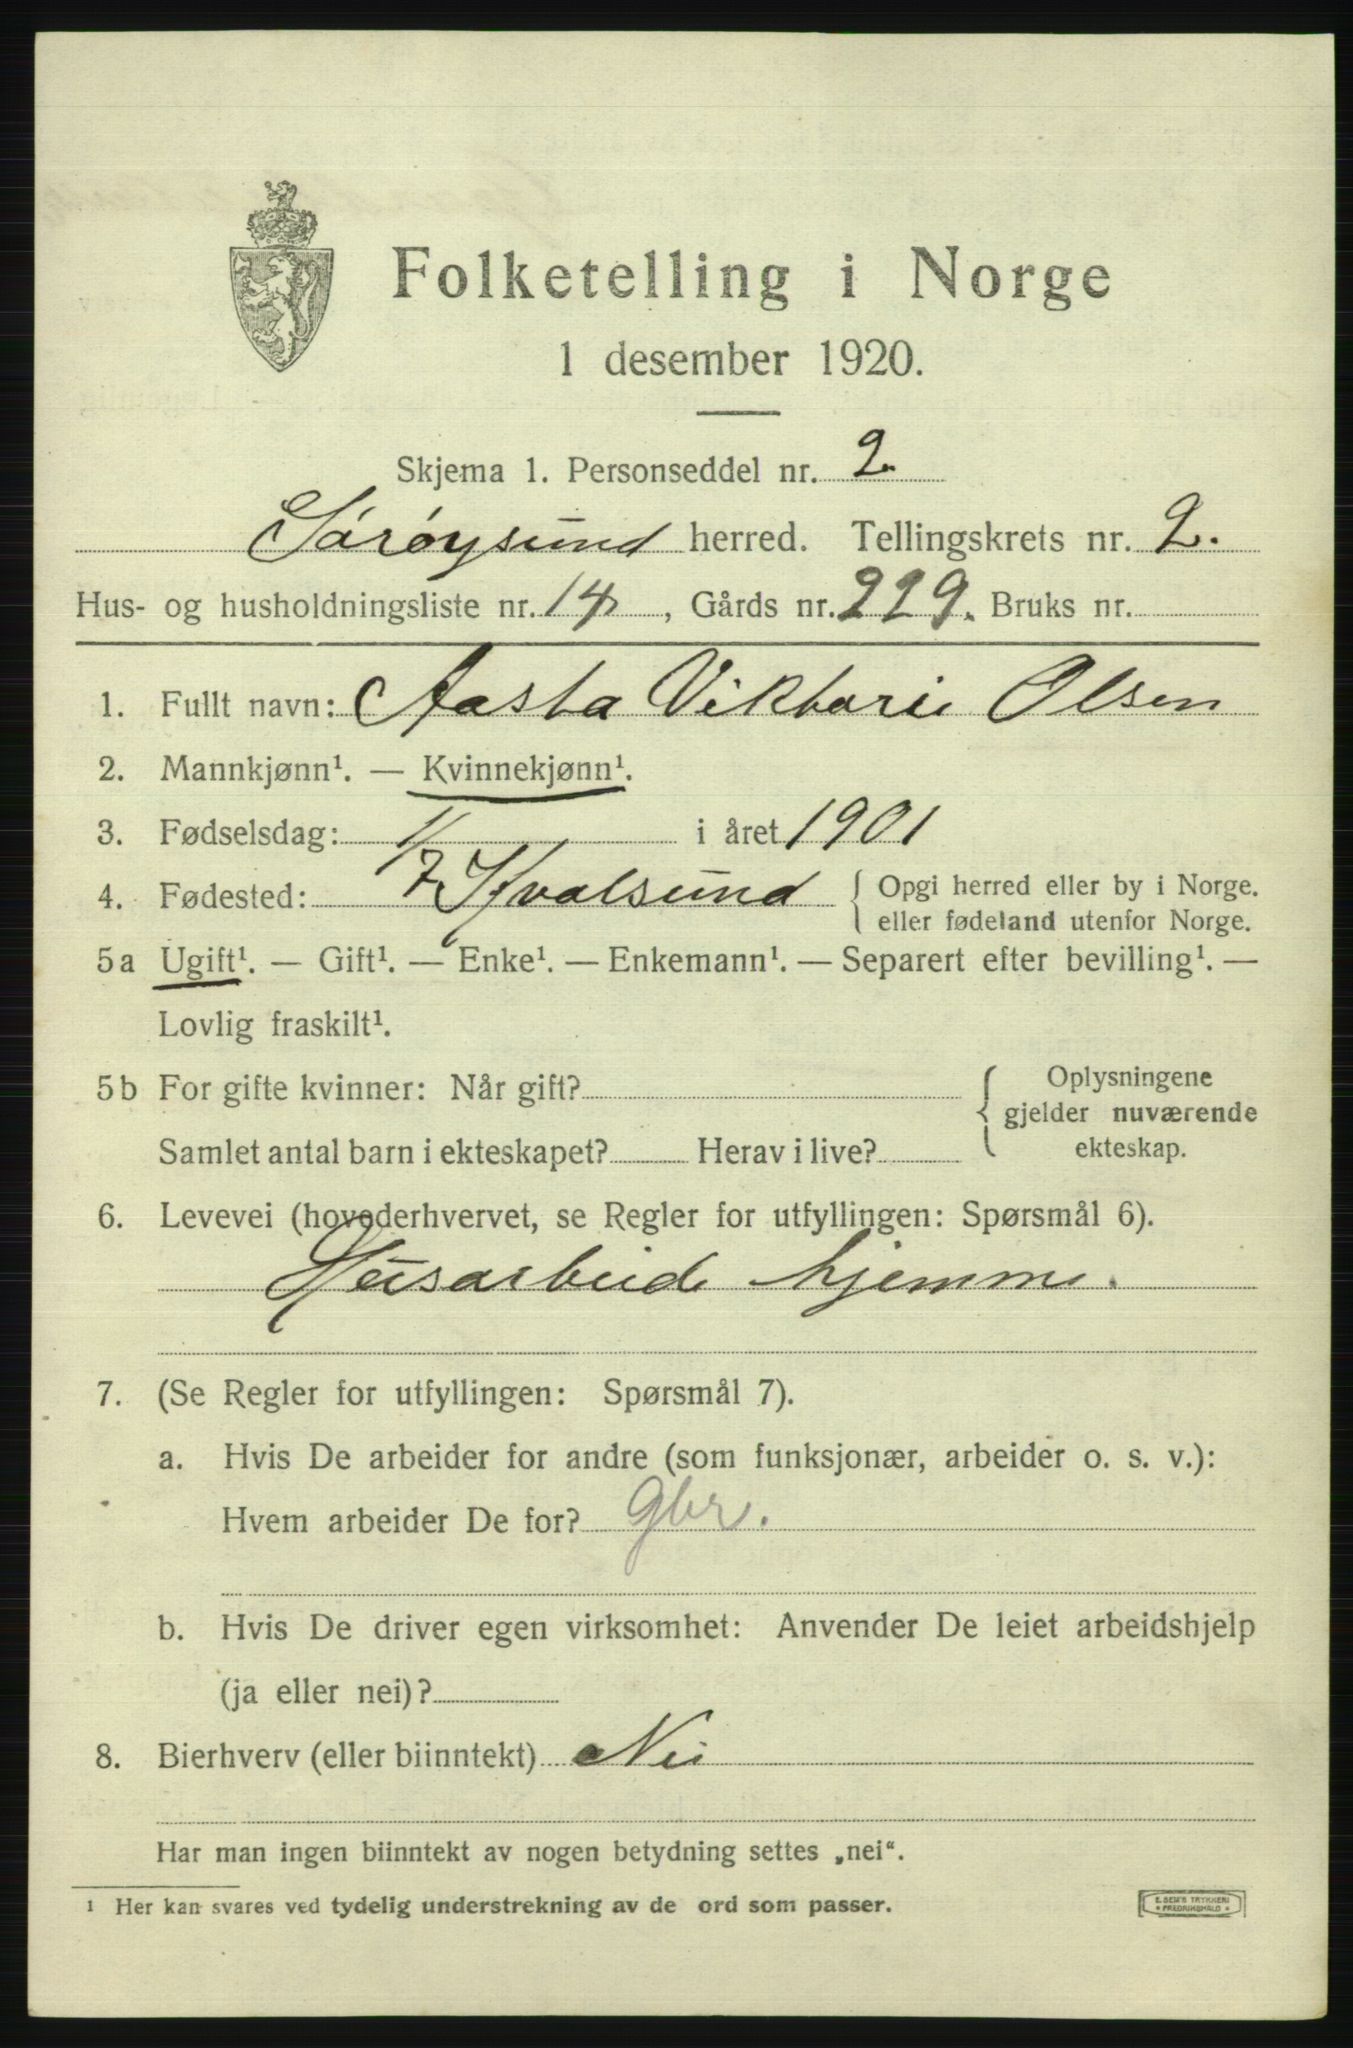 Folketelling i Norge
1 desember 1920.
Skjema 1. Personseddel nr. 2.
Sørøysund herred. Tellingskrets nr. 2.
Hus- og husholdningsliste nr. 14, Gårds nr. 229. Bruks nr.
1. Fullt navn: Aasta Viktorie Olsen
2. Mannkjønn¹. — Kvinnekjønn¹.
3. Fødselsdag: 1/7 i året 1901
4. Fødested: Kvalsund { Opgi herred eller by i Norge.
eller fødeland utenfor Norge.
5a Ugift¹. — Gift¹. — Enke¹. — Enkemann¹. — Separert efter bevilling¹. —
Lovlig fraskilt¹.
5b For gifte kvinner: Når gift?
Oplysningene
gjelder nuværende
ekteskap.
Samlet antal barn i ekteskapet? Herav i live?
6. Levevei (hovederhvervet, se Regler for utfyllingen: Spørsmål 6).
Husarbeide hjemme.
7. (Se Regler for utfyllingen: Spørsmål 7).
a. Hvis De arbeider for andre (som funksjonær, arbeider o. s. v.):
Hvem arbeider De for? Gbr.
b. Hvis De driver egen virksomhet: Anvender De leiet arbeidshjelp
(ja eller nei)?
8. Bierhverv (eller biinntekt) Nei
Har man ingen biinntekt av nogen betydning settes „nei“.
¹ Her kan svares ved tydelig understrekning av de ord som passer.
E. SEM'S TRYKKERI
* FREDRIKSHALD *